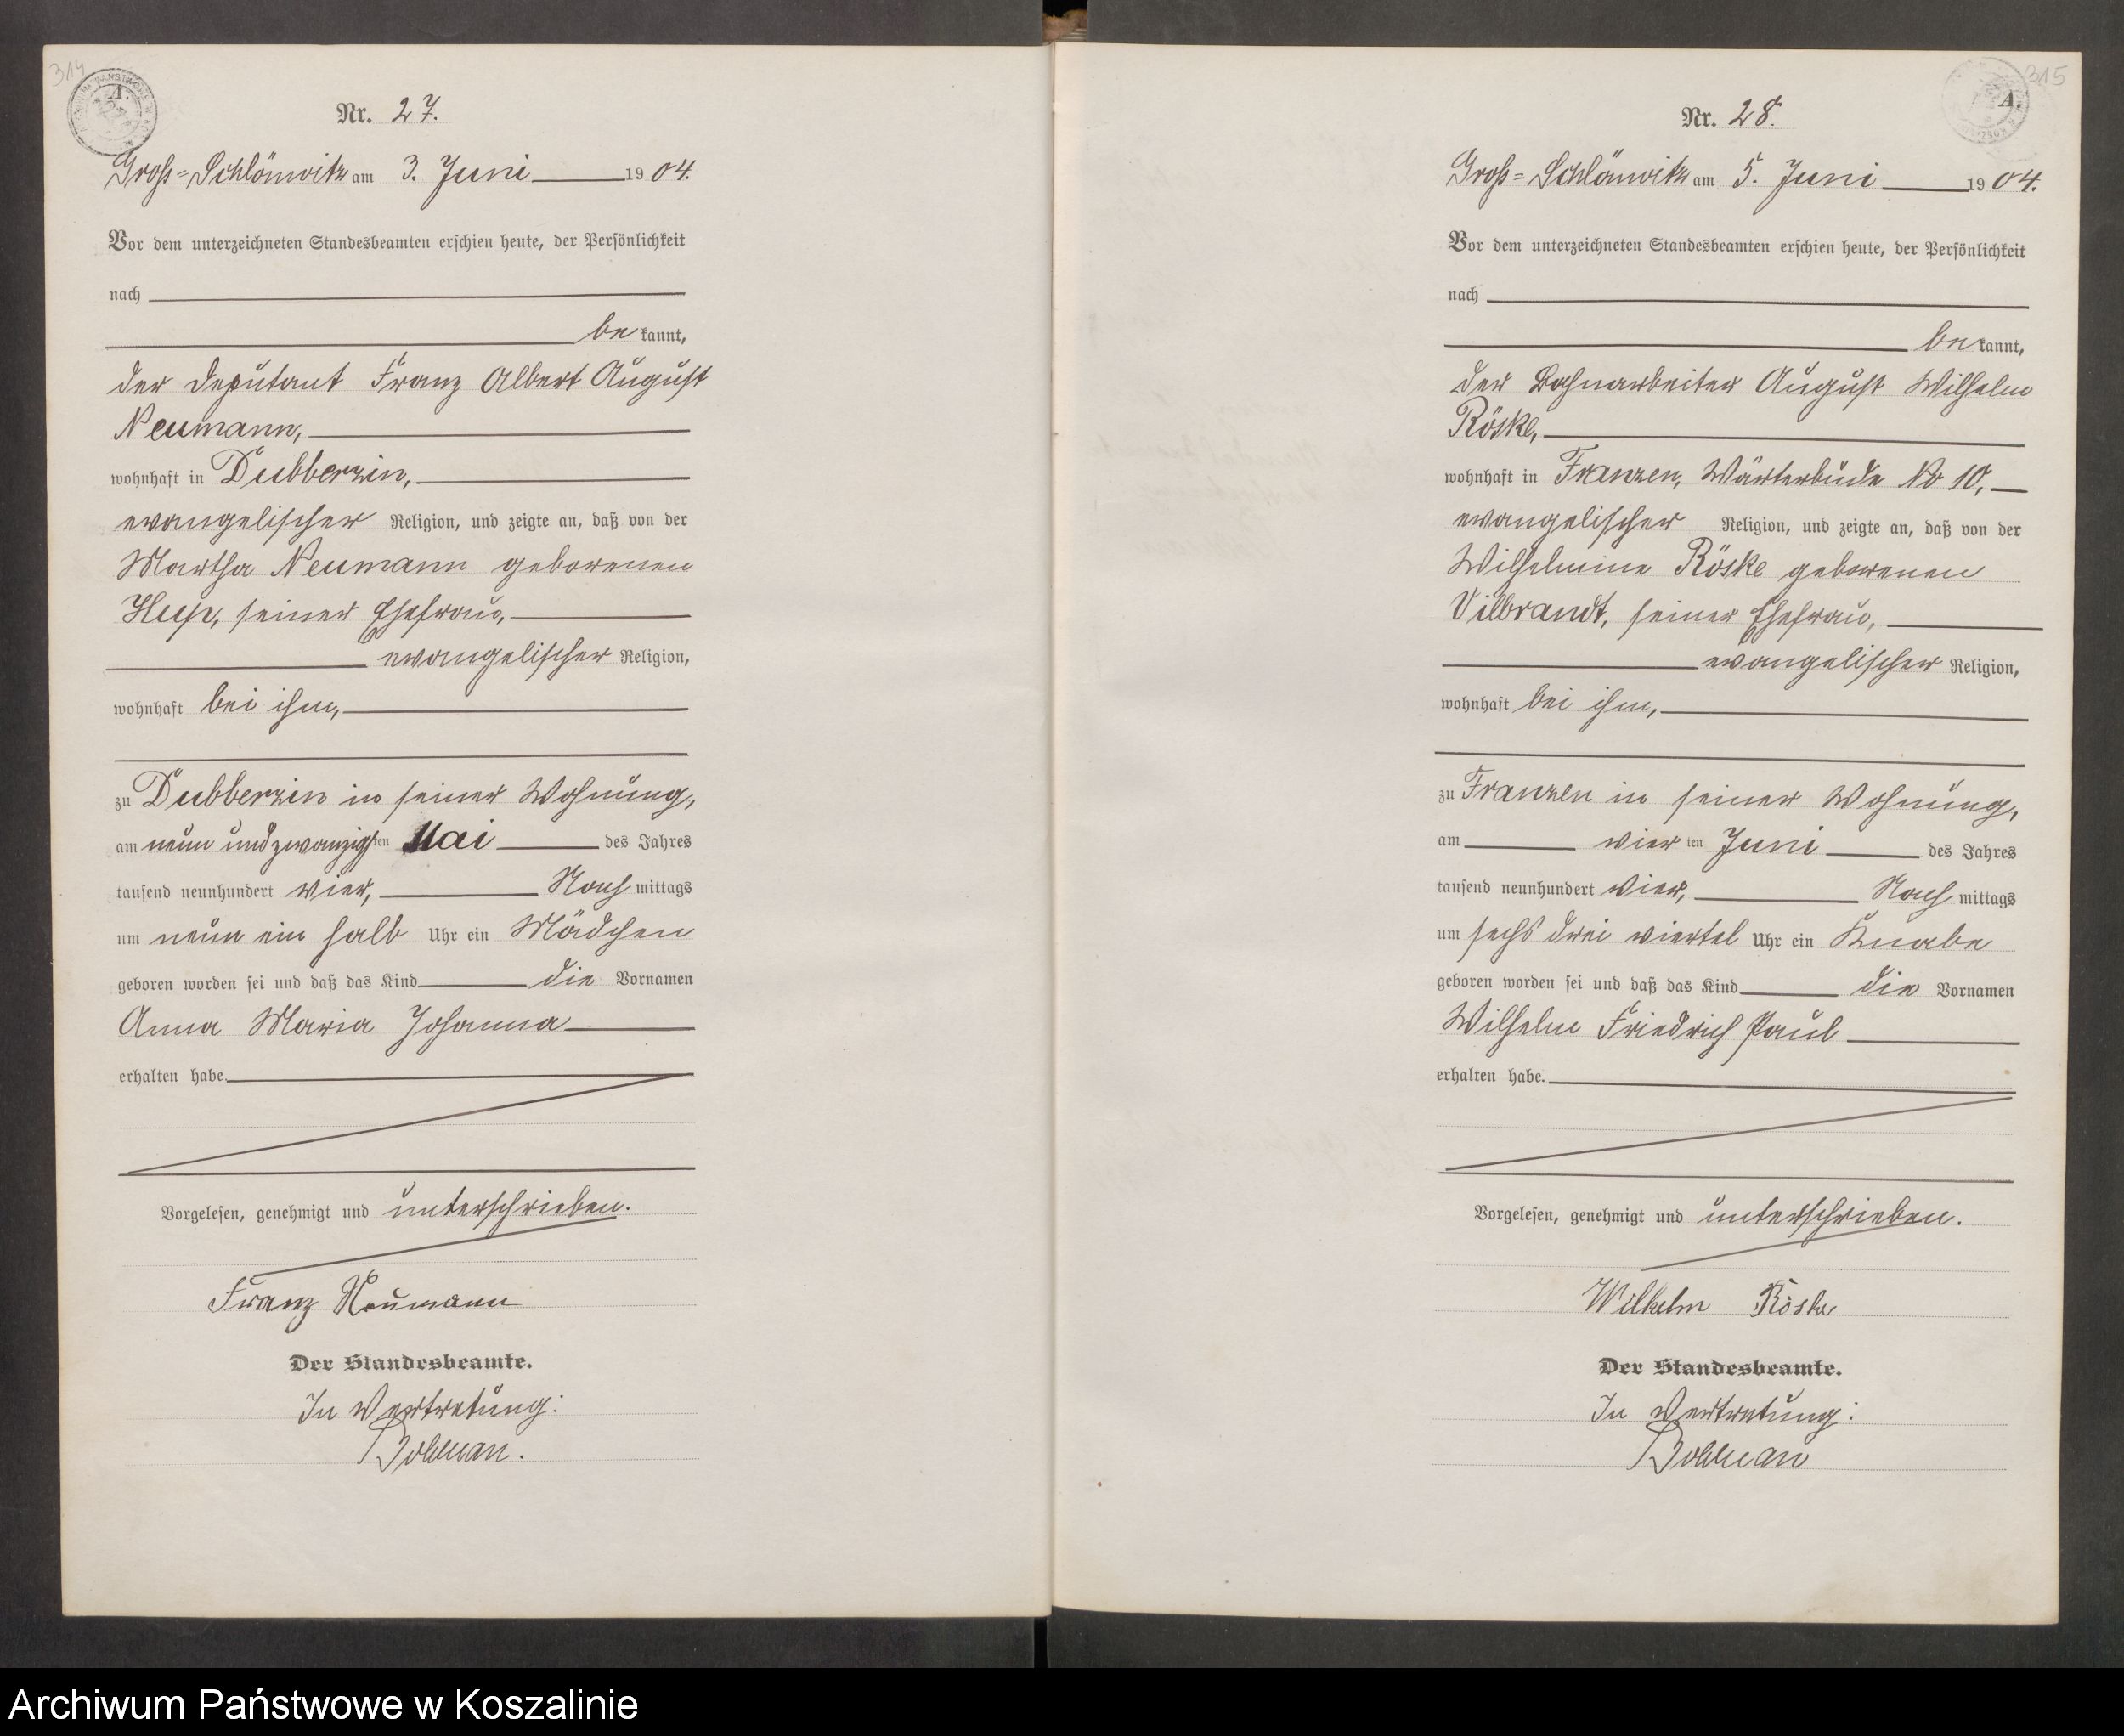 314
A.
Nr. 27.
Groß=Schlönwitz am 3. Juni 1904.
Vor dem unterzeichneten Standesbeamten erschien heute, der Persönlichkeit
nach
be kannt,
der Deputant Franz Albert August
Neumann,
wohnhaft in Dubberzin,
evangelischer Religion, und zeigte an, daß von der
Martha Neumann geborenen
seiner Ehefrau,
evangelischer Religion,
wohnhaft bei ihm,
zu Dubberzin in seiner Wohnung,
am neun und zwanzigsten Mai des Jahres
tausend neunhundert vier, Nach mittags
um neun ein halb Uhr ein Mädchen
geboren worden sei und daß das Kind die Vornamen
Anna Maria Johanna
erhalten habe.
Vorgelesen, genehmigt und unterschrieben.
Franz Neumann
Der Standesbeamte.
In Vertretung:
315
A.
Nr. 28.
Groß=Schlönwitz am 5. Juni 1904.
Vor dem unterzeichneten Standesbeamten erschien heute, der Persönlichkeit
nach
be kannt,
der Bahnarbeiter August Wilhelm
Röske,
wohnhaft in Franzen, Wärterbude No 10,
evangelischer Religion, und zeigte an, daß von der
Wilhelmine Röske geborenen
Vilbrandt, seiner Ehefrau,
evangelischer Religion,
wohnhaft bei ihm,
zu Franzen in seiner Wohnung,
am vier ten Juni des Jahres
tausend neunhundert vier, Nach mittags
um sechs drei viertel Uhr ein Knabe
geboren worden sei und daß das Kind die Vornamen
Wilhelm Friedrich Paul
erhalten habe.
Vorgelesen, genehmigt und unterschrieben.
Wilhelm Röske
Der Standesbeamte.
In Vertretung:
Archiwum Państwowe w Koszalinie